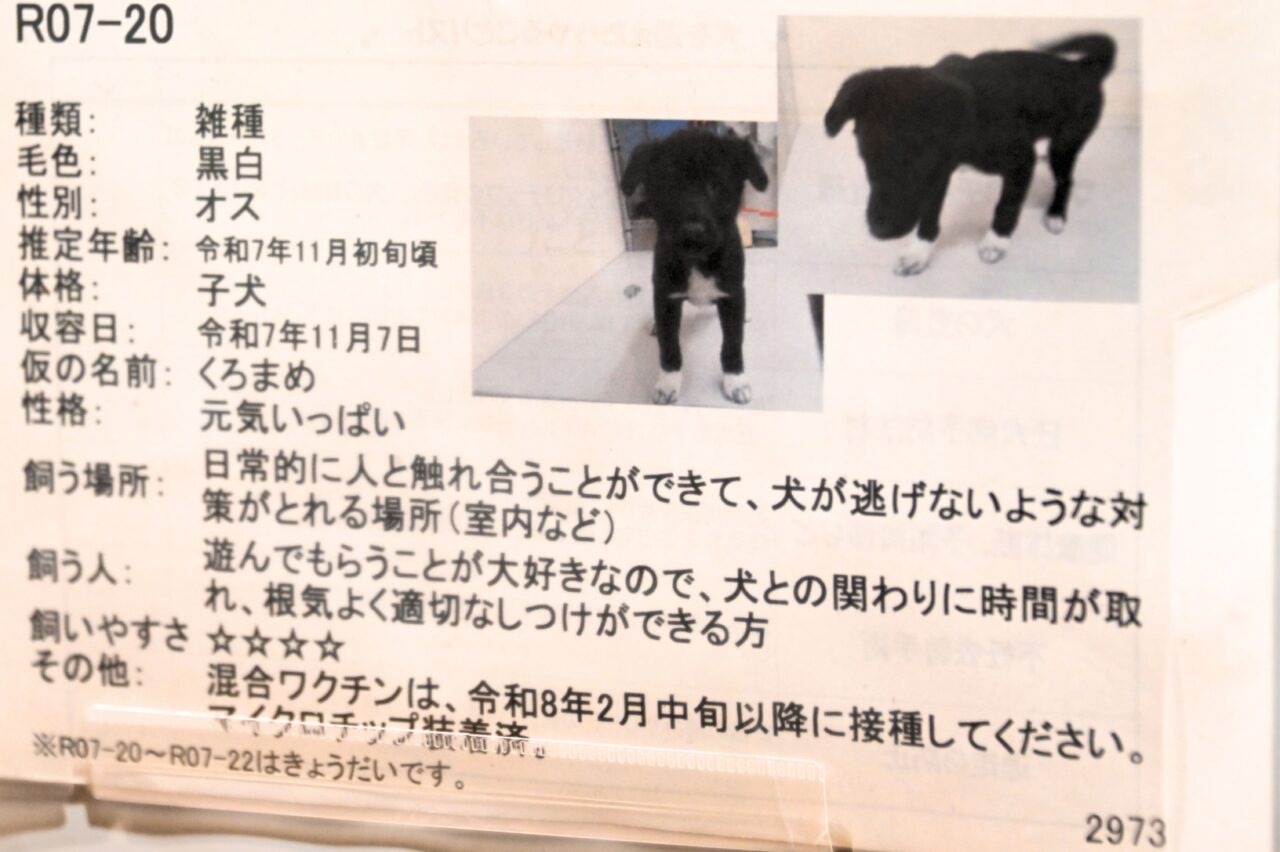 R07-20
種類: 雑種
毛色: 黒白
性別: オス
推定年齢: 令和7年11月初旬頃
体格: 子犬
収容日: 令和7年11月7日
仮の名前: くろまめ
性格: 元気いっぱい
飼う場所: 日常的に人と触れ合うことができて、犬が逃げないような対
策がとれる場所(室内など)
飼う人: 遊んでもらうことが大好きなので、犬との関わりに時間が取
れ、根気よく適切なしつけができる方
飼いやすさ ☆☆☆☆
その他: 混合ワクチンは、令和8年2月中旬以降に接種してください。
マイクロチップ装着済。
※R07-20～R07-22はきょうだいです。
2973